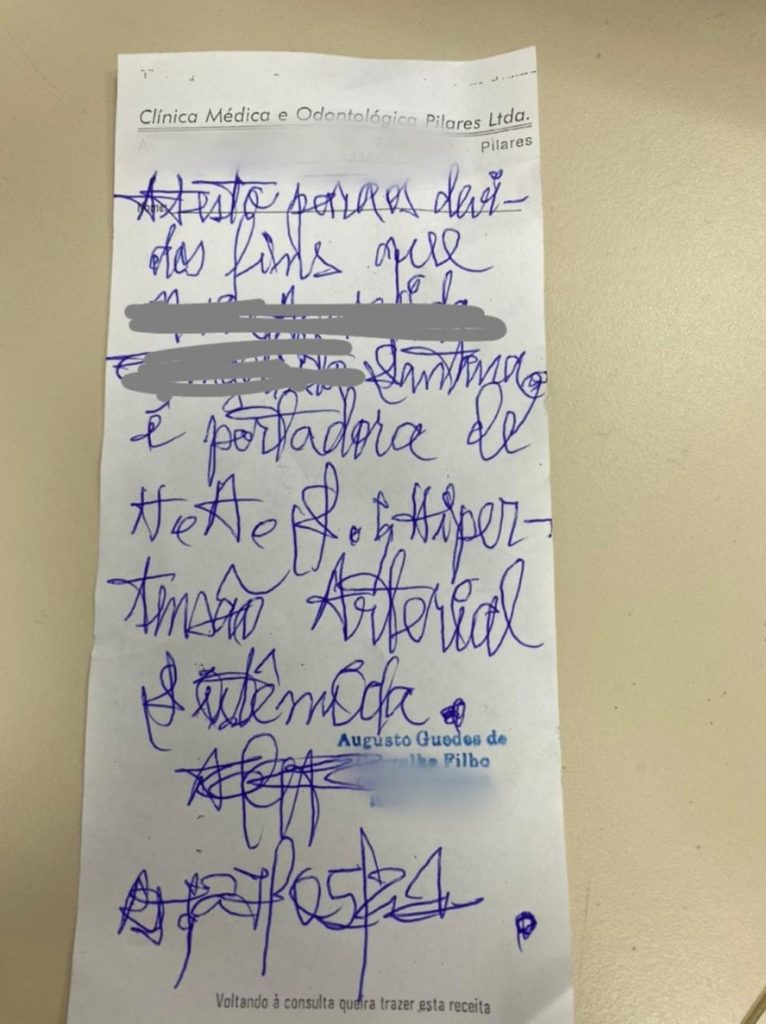 Clínica Médica e Odontológica Pilares Ltda.
Pilares
Atesto para os devi-
dos fins que
Santana,
é portadora de
H.A.S.: Hiper-
tensão Arterial
Sistêmica.
Augusto Guedes de
Carvalho Filho
27/05/21
Voltando à consulta queira trazer esta receita